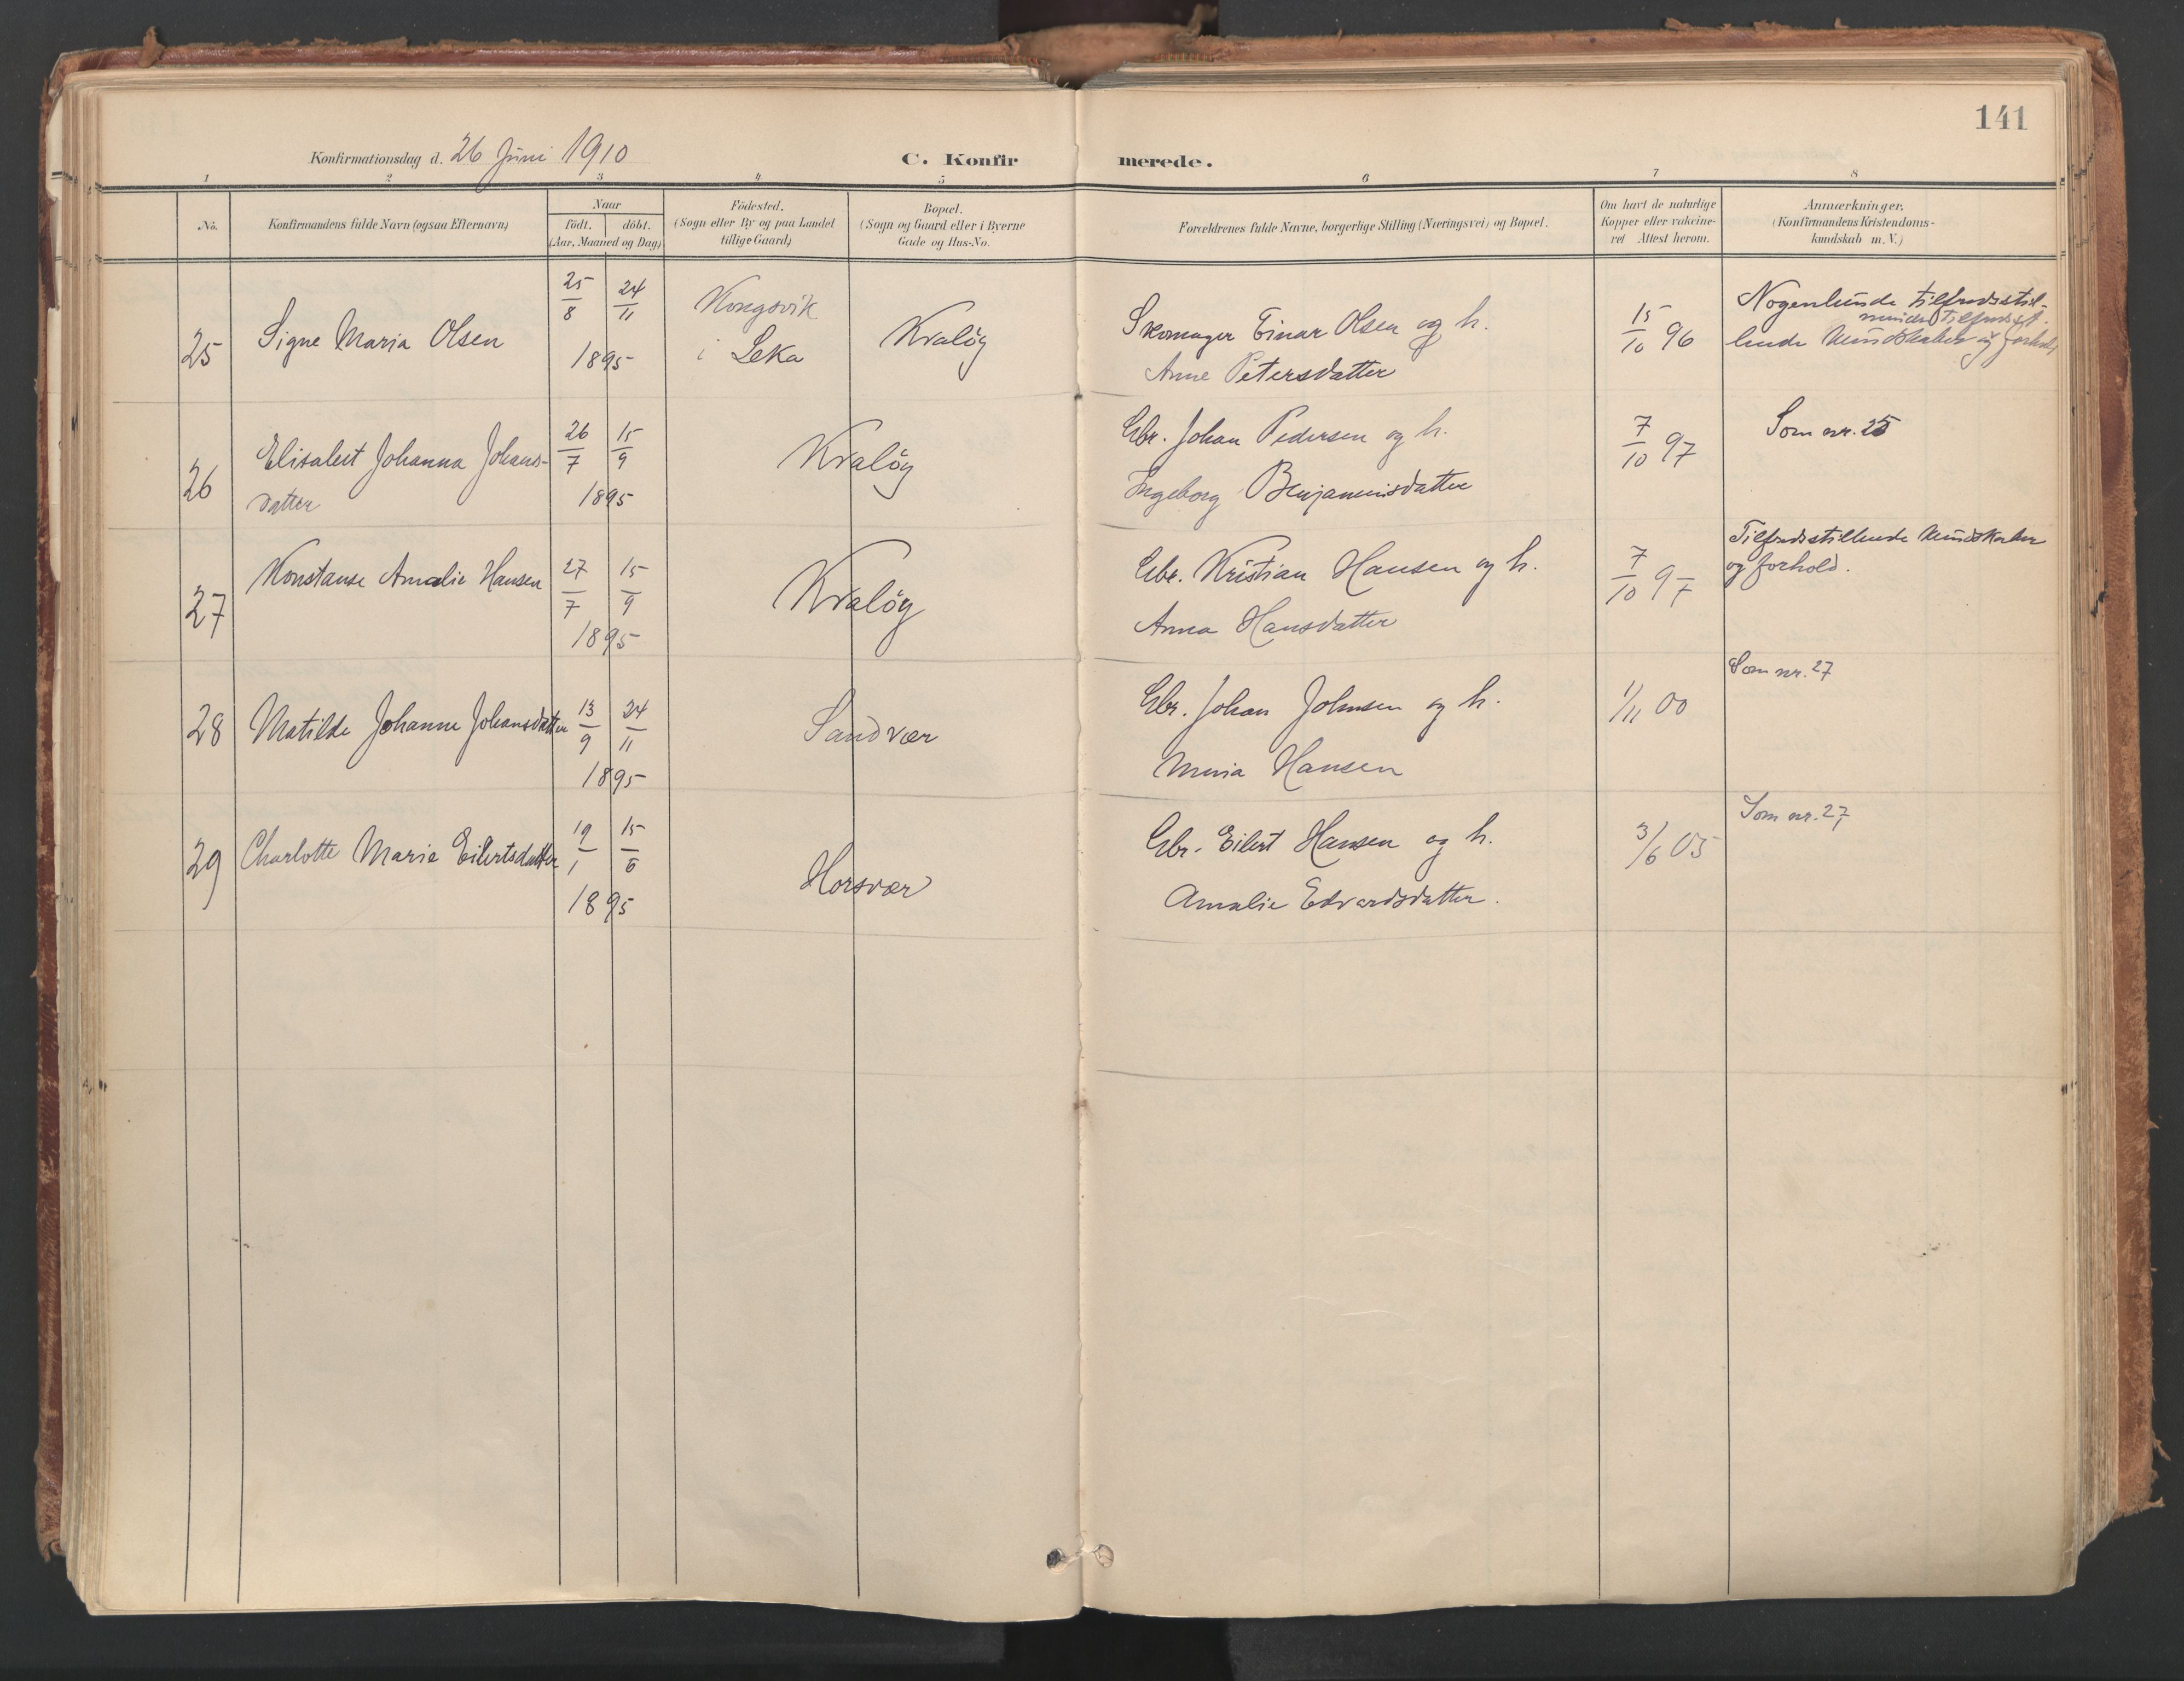 141
Konfirmationsdag d. 26 Juni 1910
C. Konfirmerede.
1 2 3 4 5 6 7 8
No. Konfirmandens fulde Navn (ogsaa Efternavn) Naar födt. döbt. (Aar, Maaned og Dag) Födested. (Sogn eller By og paa Landet tillige Gaard) Bopæl. (Sogn og Gaard eller i Byerne Gade og Hus-No. Forældrenes fulde Navne, borgerlige Stilling (Næringsvei) og Bopæl. Om havt de naturlige Kopper eller vakcineret Attest herom. Anmærkninger. (Konfirmandens Kristendomskundskab m. V.)
25 Signe Maria Olsen 25/8 24/11 1895 Kongsvik i Leka Kvaløy Skomager Einar Olsen og h. Anne Petersdatter 15/10 96 Nogenlunde tilfredsstillende Kundskaber og mindre tilfredsst. forhold
26 Elisabet Johanna Johansdatter 26/7 15/9 1895 Kvaløy Gbr. Johan Pedersen og h. Ingeborg Benjaminsdatter 7/10 97 Som nr. 25
27 Konstanse Amalie Hansen 27/7 15/9 1895 Kvaløy Gbr. Kristian Hansen og h. Anna Hansdatter 7/10 97 Tilfredsstillende Kundskaber og forhold.
28 Matilde Johanne Johansdatter 13/9 24/11 1895 Sandvær Gbr. Johan Johnsen og h. Hansen 1/11 00 Som nr. 27
29 Charlotte Marie Eilertsdatter 19/1 15/6 1895 Horsvær Gbr. Eilert Hansen og h. Amalie Edvardsdatter. 3/6 05 Som nr. 27